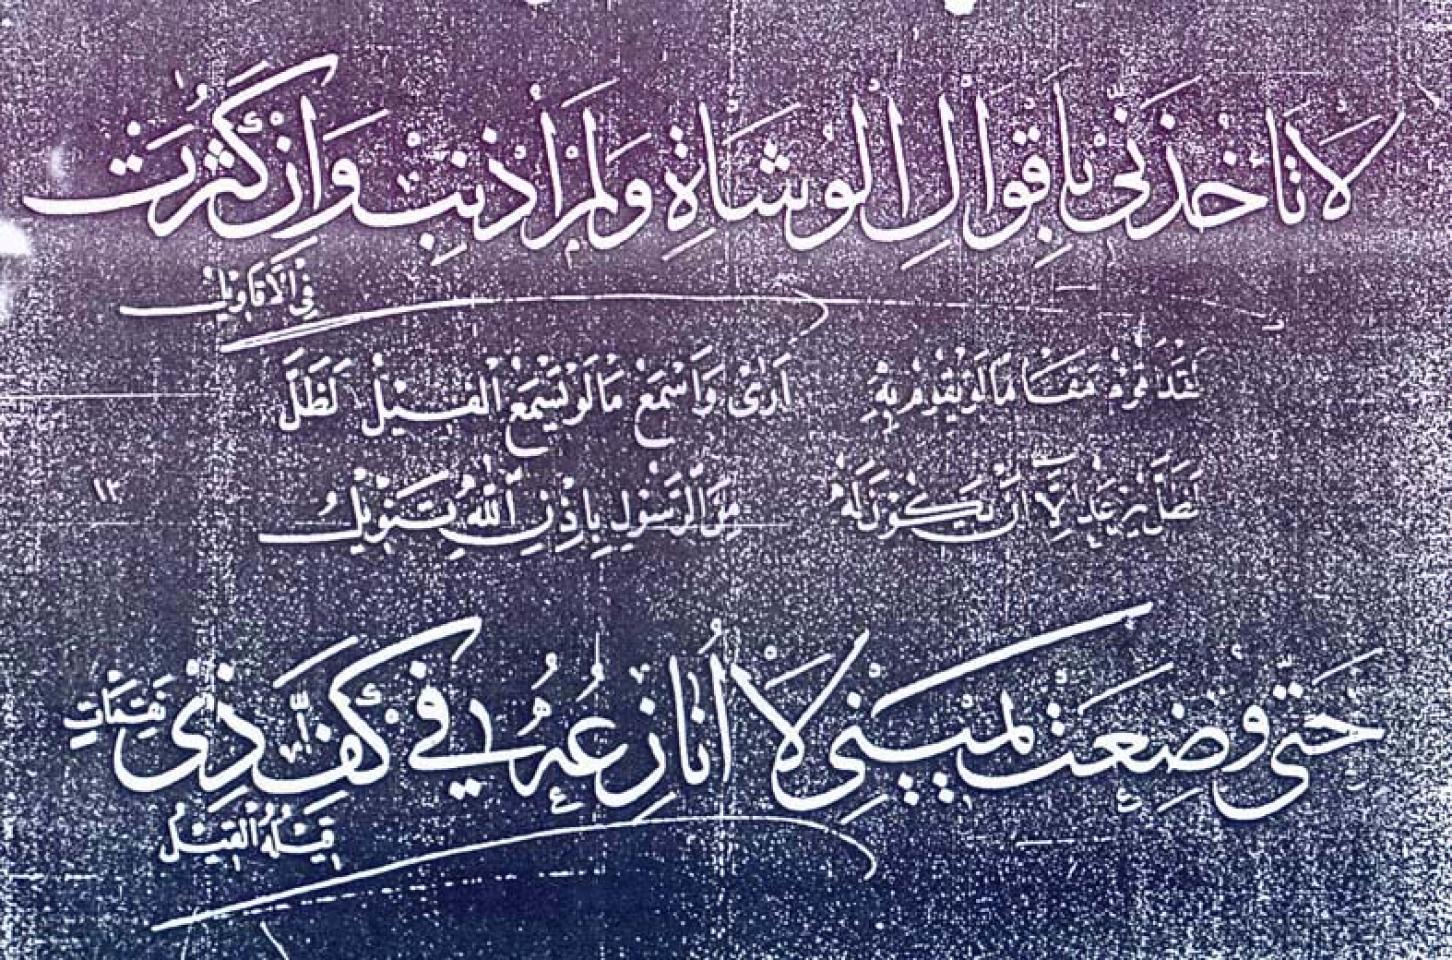 لَا تَأْخُذَنِّي بِأَقْوَالِ الْوُشَاةِ وَلَمْ أُذْنِبْ وَإِنْ كَثُرَتْ
فِي الْأَقَاوِيلُ
لَقَدْ أَقُومُ مَقَامًا مَا لَوْ يَقُومُ بِهِ أَرَى وَأَسْمَعُ مَا لَوْ يَسْمَعُ الْفِيلُ لَظَلَّ
لَظَلَّ يُرْعَدُ إِلَّا أَنْ يَكُونَ لَهُ مِنَ الرَّسُولِ بِإِذْنِ اللَّهِ تَنْوِيلُ
١٢
حَتَّى وَضَعْتُ يَمِينِي لَا أُنَازِعُهُ فِي كَفِّ ذِي نَقِمَاتٍ
قِيلُهُ الْقِيلُ